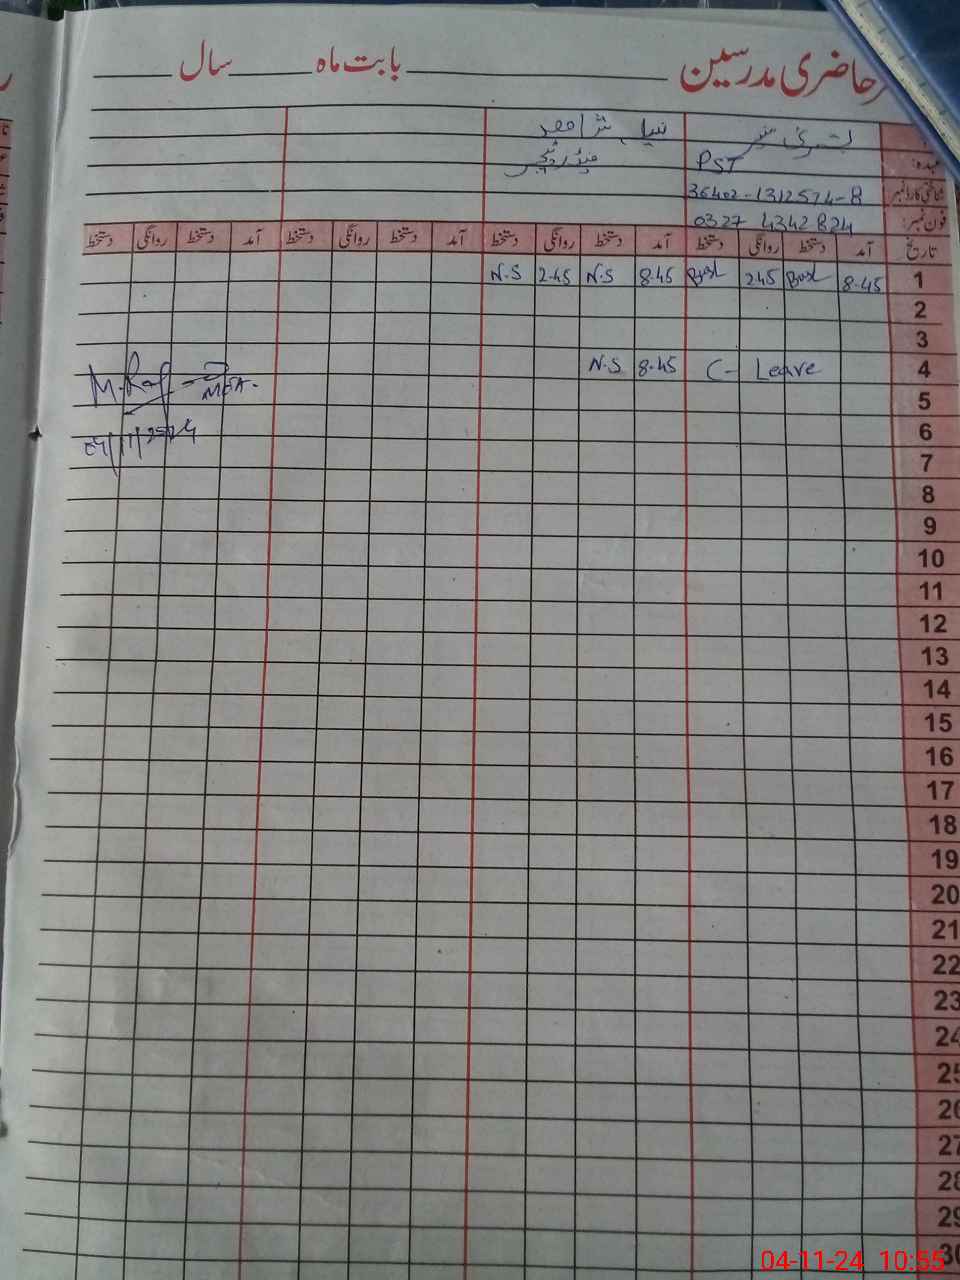 حاضری مدرسین ________ بابت ماہ ________ سال ________
بشریٰ
عہدہ: PST ہیڈ ٹیچر
شناختی کارڈ نمبر 36402-1312574-8
فون نمبر: 0327 4342824
تاریخ آمد دستخط روانگی دستخط آمد دستخط روانگی دستخط آمد دستخط روانگی دستخط آمد دستخط روانگی دستخط
1 8-45 245 8-45 N.S 2-45 N.S
2
3
4 C- Leave 8-45 N.S
5
6
7
8
9
10
11
12
13
14
15
16
17
18
19
20
21
22
23
24
25
26
27
28
29
30
04/11/2024
04-11-24 10:55